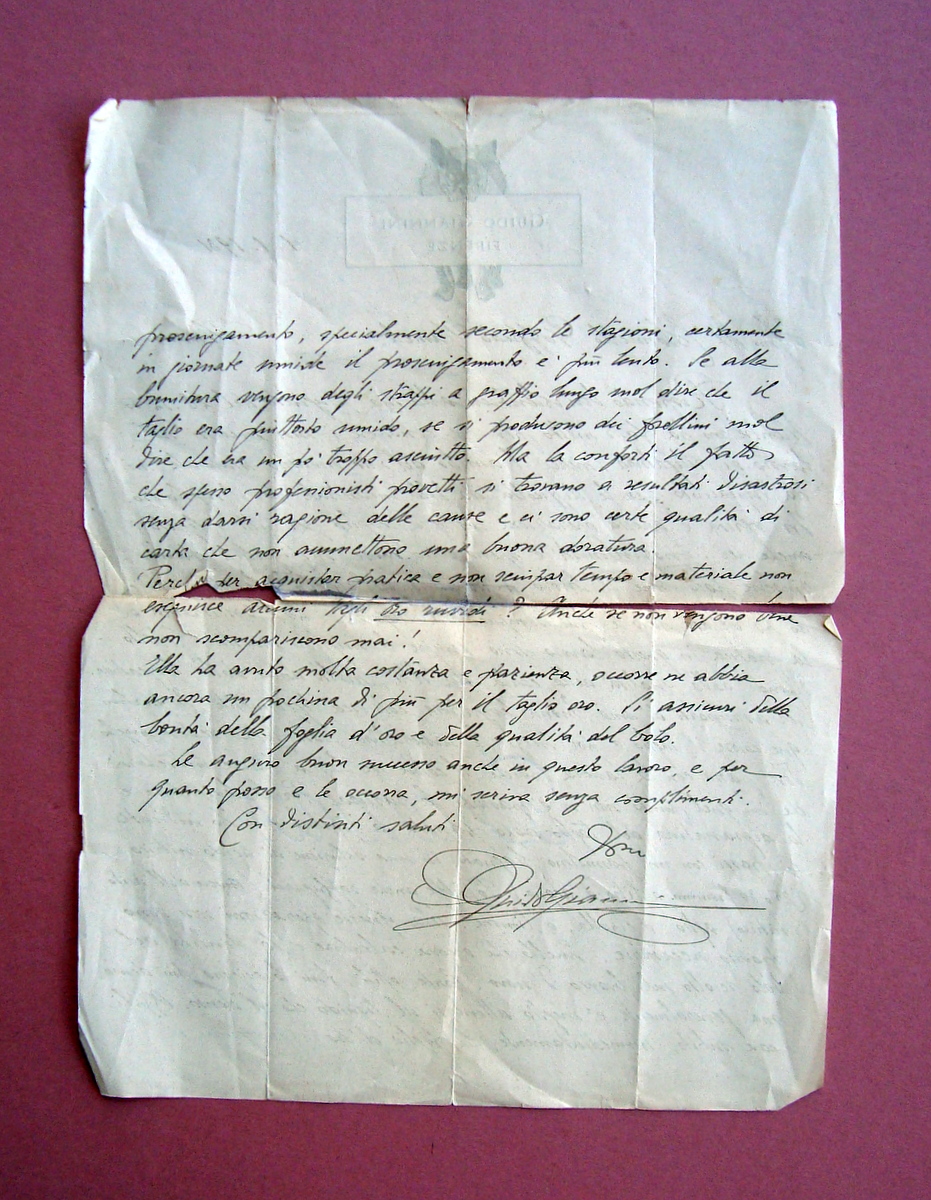 GUIDO GIANNINI
FIRENZE
prosciugamento, specialmente secondo le stagioni, certamente
in giornate umide il prosciugamento è più lento. Se alla
brunitura vengono degli strappi a graffio lungo vuol dire che il
taglio era piuttosto umido, se si producono dei forellini vuol
dire che era un pò troppo asciutto. Ma la conforti il fatto
che spesso professionisti provetti si trovano a resultati disastrosi
senza darsi ragione delle cause e ci sono certe qualità di
carta che non ammettono una buona doratura.
Perchè per acquistar pratica e non sciupar tempo e materiale non
eseguisce alcuni tagli oro ruvidi? Anche se non vengono bene
non scompariscono mai!
Ella ha avuto molta costanza e pazienza, occorre ne abbia
ancora un pochina di più per il taglio oro. Si assicuri della
bontà della foglia d'oro e della qualità del bolo.
Le auguro buon successo anche in questo lavoro, e per
quanto posso e le occorra, mi scriva senza complimenti.
Con distinti saluti
Guido Giannini